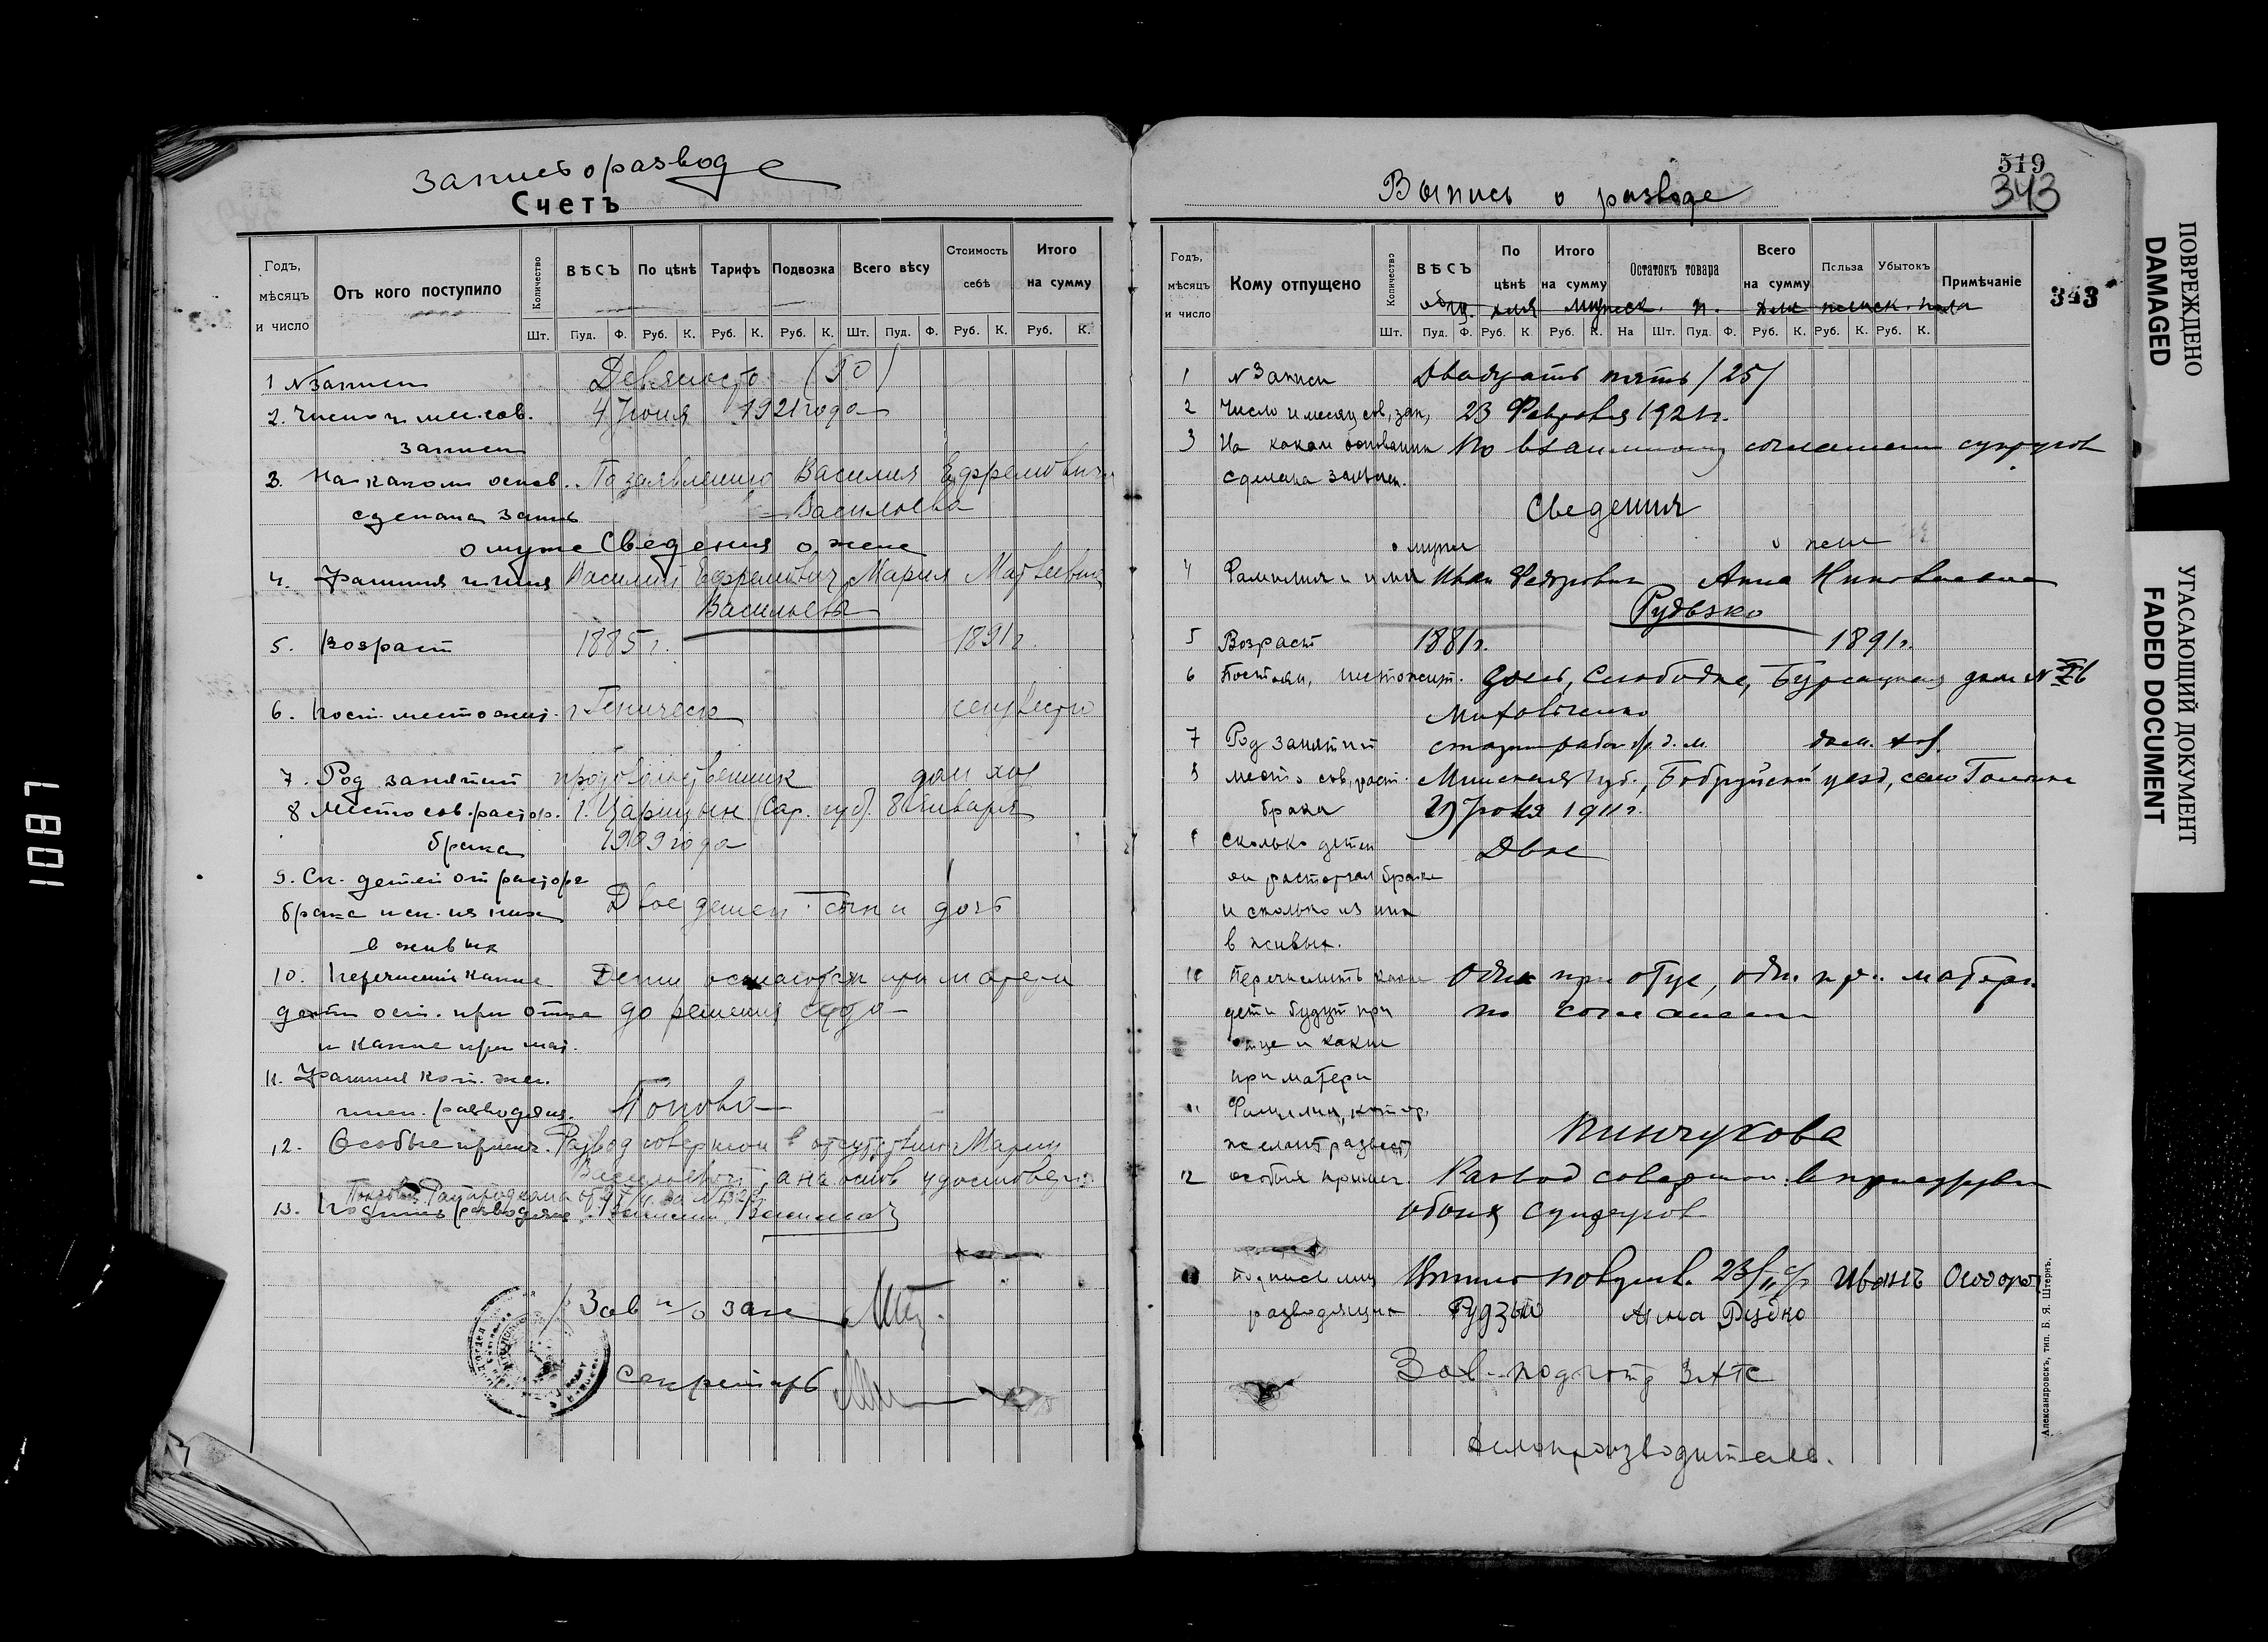 Запись о разводе
Счетъ
Годъ, мѣсяцъ и число
Отъ кого поступило
Количество
ВѢСЪ
По цѣнѣ
Тарифъ
Подвозка
Всего вѣсу
Стоимость себѣ
Итого на сумму
Шт. Пуд. Ф. Руб. К. Руб. К. Руб. К. Шт. Пуд. Ф. Руб. К. Руб. К.
1 № записи Девяносто (90)
2. Число и мес. сов. 4 Июня 1921 года
записи
3. На каком основ. По заявлению Василия Ефремовича
сделана запись Васильева
о муже Сведения о жене
4. Фамилия и имя Василий Ефремович Мария Матвеевна
Васильевы
5. Возраст 1885 г. 1891 г.
6. Пост. местожит. г. Геническ
7. Род занятий дом. хоз
8 Место сов. растор. г. Царицын (Сар. губ). 8 Января
брака 1909 года
9. Ск. детей от расторг
брака и ск. из них Двое детей сын и дочь
в живых
10. Перечислить какие Дети остаются при матери
дети ост. при отце до решения суда
и какие при мат.
11. Фамилия кот. жел.
имен. разводящ. Попова
12. Особые примеч. Развод совершон в отсутствии Марии
Васильевой, а на основ удостовер.
13. Подпись разводящ. Василий Васильев
Зав п/о загс
Секретарь
519
343
Выпись о разводе
Годъ, мѣсяцъ и число
Кому отпущено
Количество
ВѢСЪ
По цѣнѣ
Итого на сумму
Остатокъ товара
Всего на сумму
Польза
Убытокъ
Примѣчаніе
343
Шт. Пуд. Ф. Руб. К. Руб. К. На Шт. Пуд. Ф. Руб. К. Руб. К. Руб. К.
1 № Записи Двадцать пять /25/
2 Число и месяц сов. зап. 23 Февраля 1921 г.
3 На каком основании По взаимному согласию супругов
сделана запись.
Сведения
о муже о жене
4 Фамилия и имя Иван Федорович Анна Николаевна
Рудзко
5 Возраст 1881 г. 1891 г.
6 Постоян. местожит. дом №
7 Род занятий дом. хоз.
8 место сов. раст. Минская губ., Бобруйский уезд, село
брака 1911 г.
сколько детей Двое
от расторгал брака
и сколько из них
в живых.
10 Перечислить какие Один при отце, один при матери
дети будут при по соглашению
отце и какие
при матери
11 Фамилия, котор.
желают развест Пинчукова
12 особыя примеч. Развод совершон в присутствии
обоих супругов
подписи лиц 23/II с/г Иванъ Феодоров
разводящихся Рудзко Анна Рудзко
Зав. подъотд ЗАГС
Делопроизводитель.
Александровскъ, тип. Б. Я. Штернъ.
ПОВРЕЖДЕНО
DAMAGED
УГАСАЮЩИЙ ДОКУМЕНТ
FADED DOCUMENT
1087